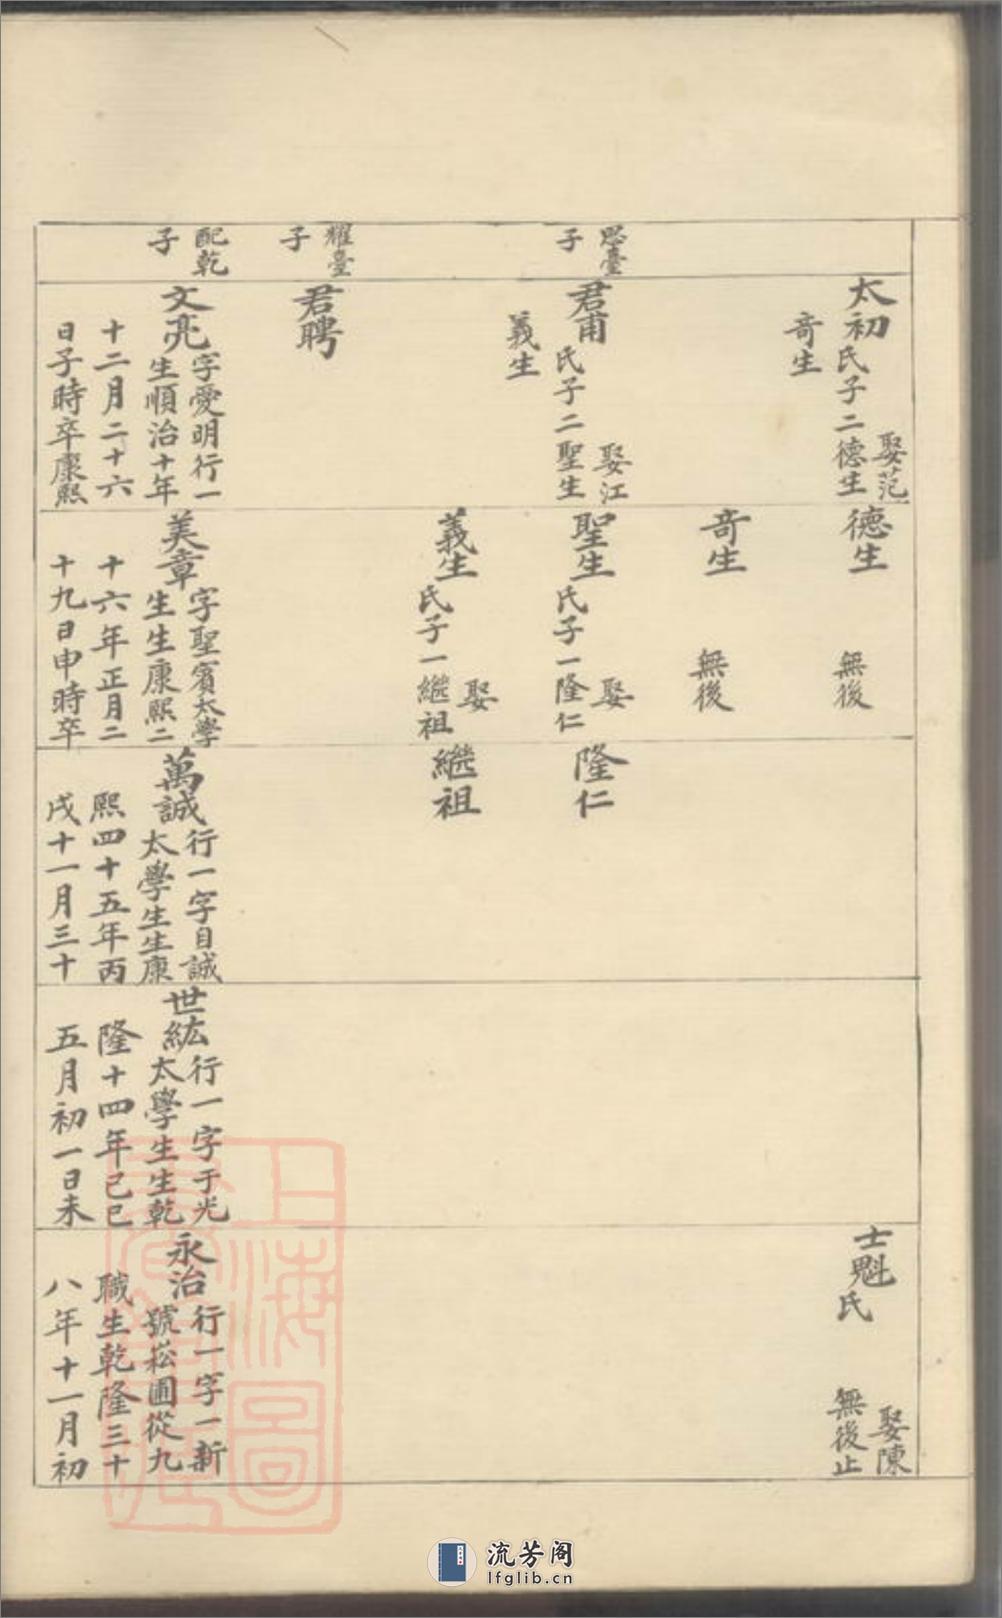 思臺
子
耀臺
子
配乾
子
太初
娶范
氏子二德生
奇生
君甫
娶江
氏子二聖生
義生
君聘
文亮
字愛明行一
生順治十年
十二月二十六
日子時卒康熙
德生
無後
奇生
無後
聖生
娶
氏子一隆仁
義生
娶
氏子一繼祖
美章
字聖賓太學
生生康熙二
十六年正月二
十九日申時卒
隆仁
繼祖
萬誠
行一字自誠
太學生生康
熙四十五年丙
戌十一月三十
世紘
行一字于光
太學生生乾
隆十四年己巳
五月初一日未
士魁
娶陳
氏
無後止
永治
行一字一新
號崧圃從九
職生乾隆三十
八年十一月初
上海圖
書館藏
流芳阁
lfglib.cn